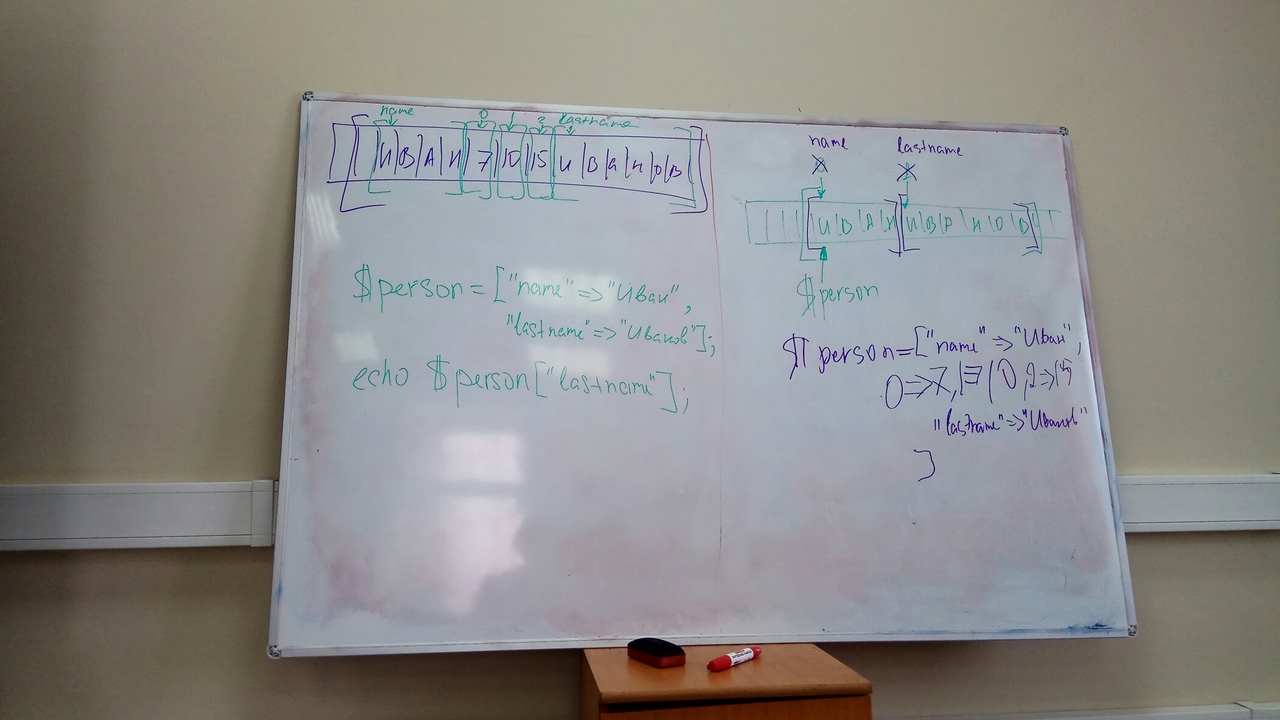 name 0 1 2 lastname
И В А Н 7 10 15 И В А Н О В
$person=["name"=>"Иван",
"lastname"=>"Иванов"];
echo $person["lastname"];
name lastname
И В А Н И В А Н О В
$person
$person=["name"=>"Иван",
0=>7, 10, 2=>15
"lastname"=>"Иванов"
]